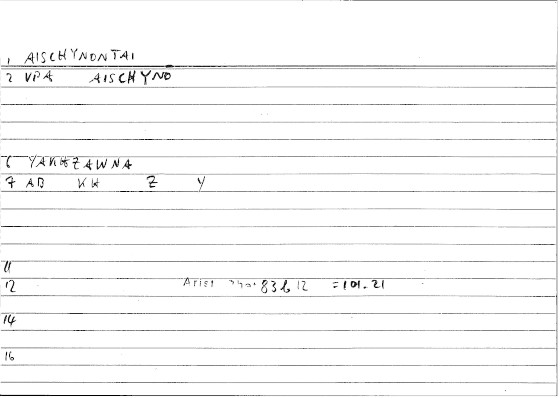 1 AISCHYNONTAI
2 VPA AISCHYNO
6 YAKHZAWNA
7 AB KH Z Y
11
12 Arist 83b 12 =101.21
14
16